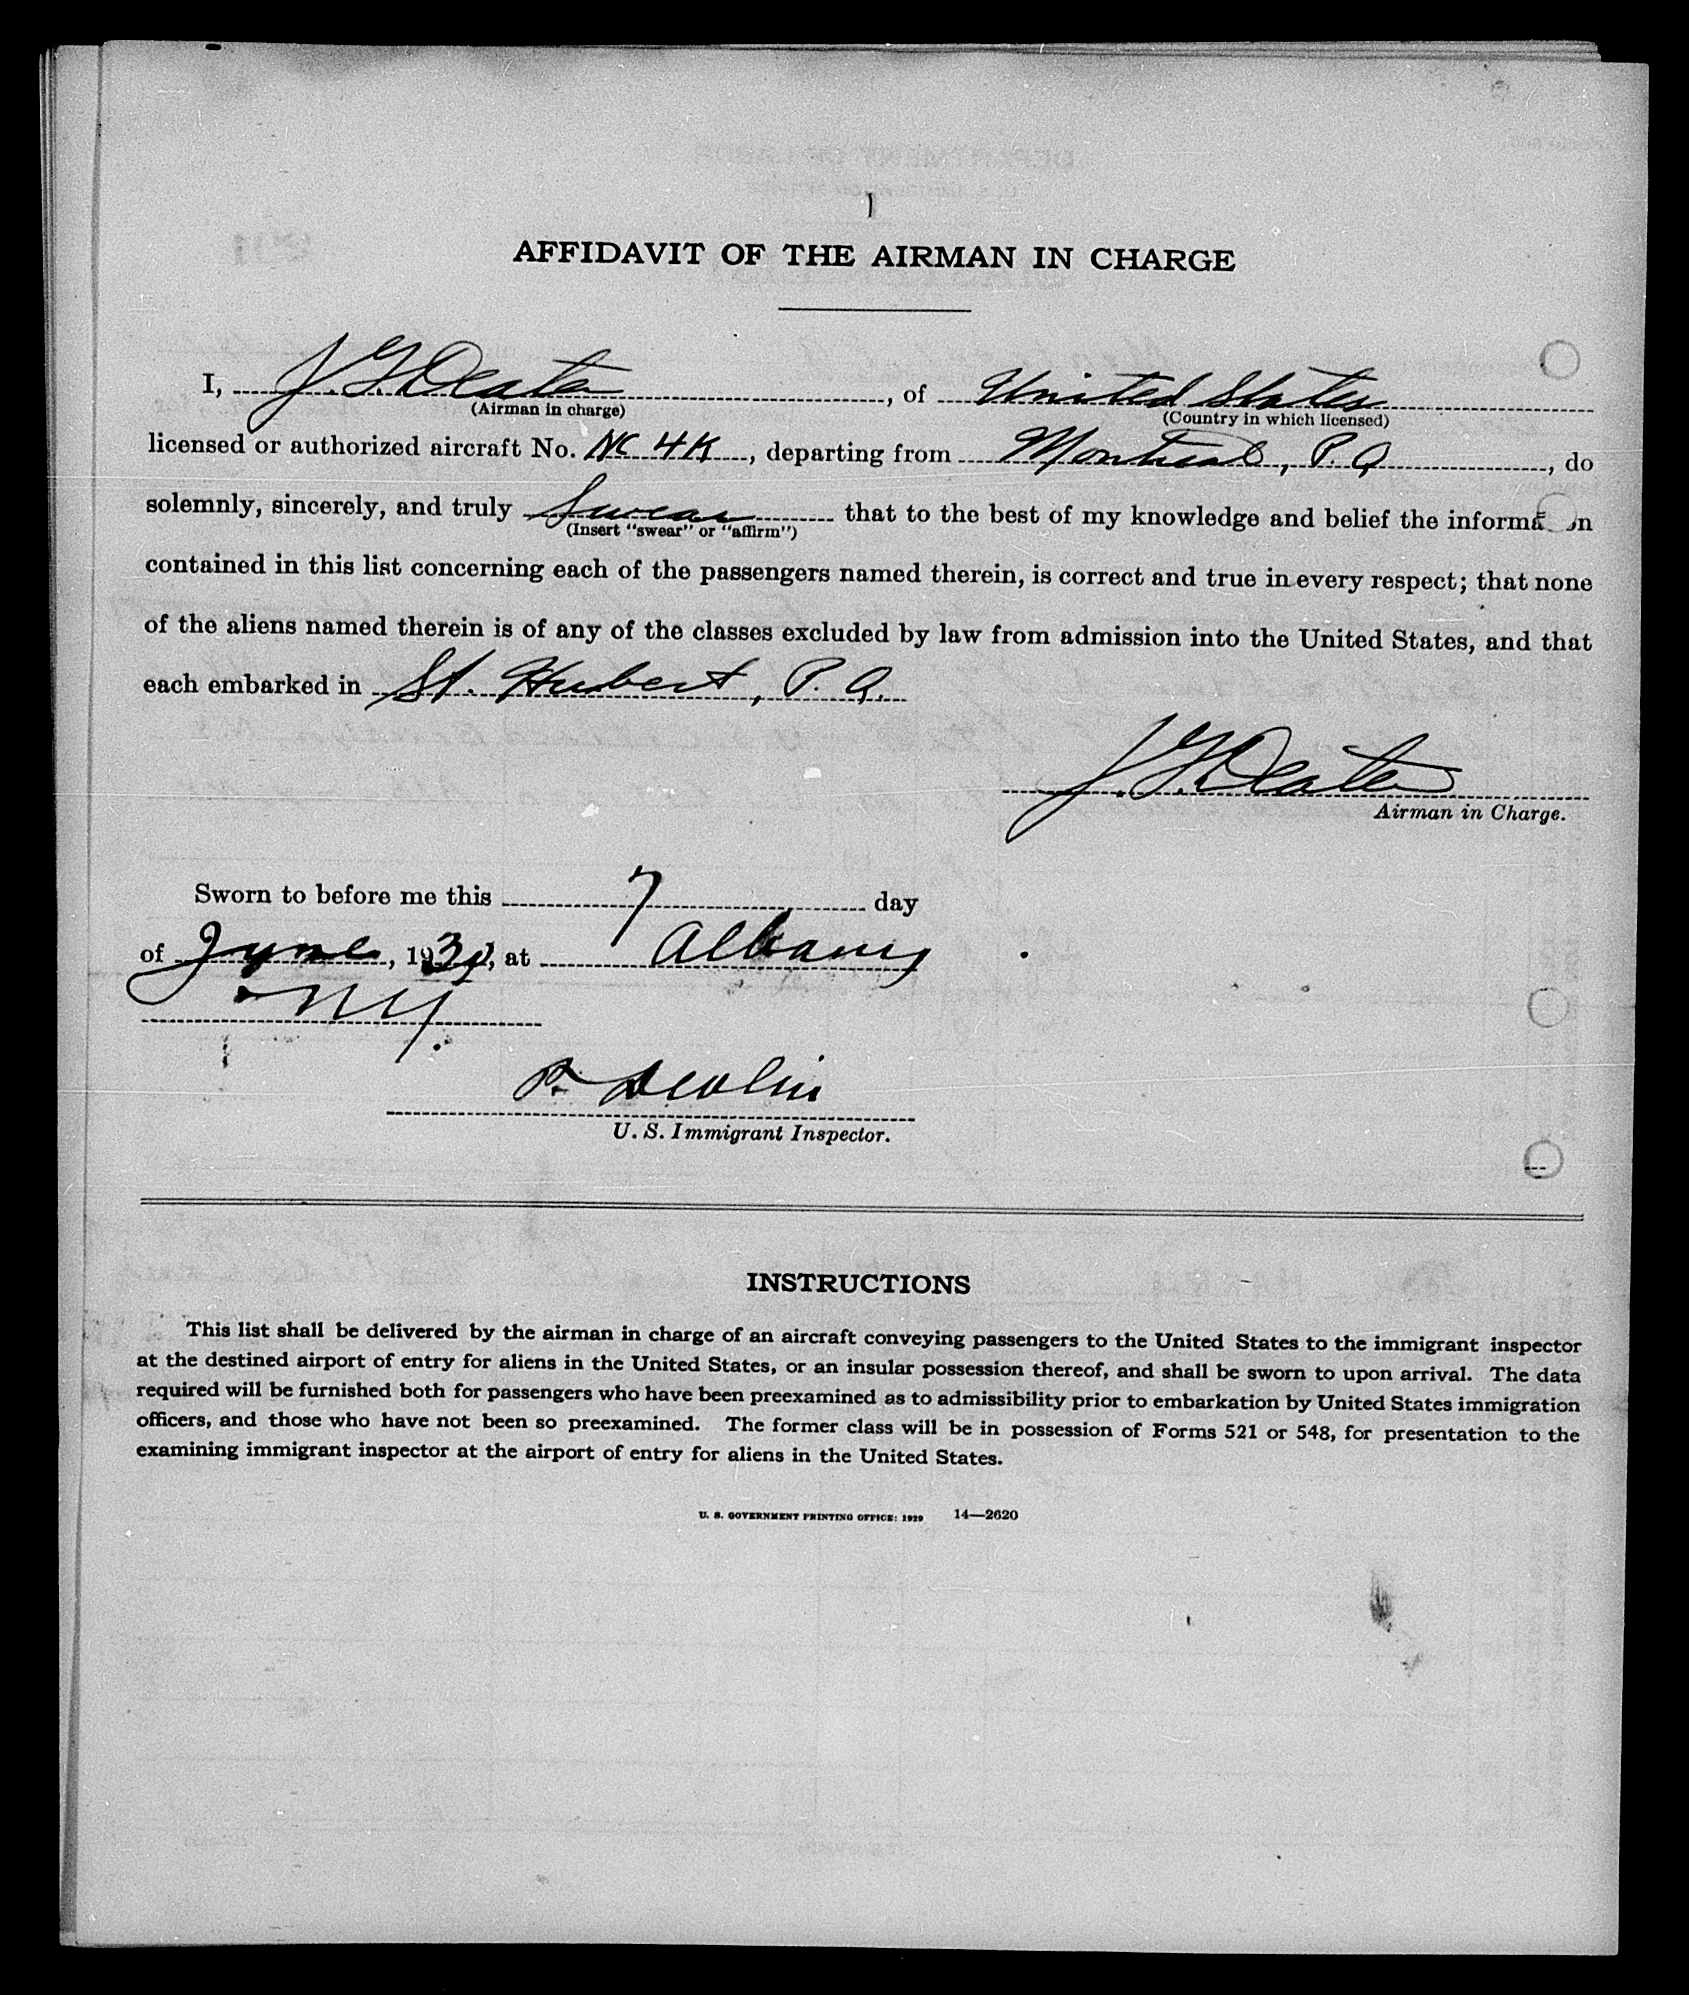 1
AFFIDAVIT OF THE AIRMAN IN CHARGE
I, J. G. Deater, of United States
(Airman in charge) (Country in which licensed)
licensed or authorized aircraft No. NC 4K, departing from Montreal, P. Q, do
solemnly, sincerely, and truly Swear that to the best of my knowledge and belief the informa on
(Insert "swear" or "affirm")
contained in this list concerning each of the passengers named therein, is correct and true in every respect; that none
of the aliens named therein is of any of the classes excluded by law from admission into the United States, and that
each embarked in St. Hubert, P. Q.
J. G. Deater
Airman in Charge.
Sworn to before me this 7 day
of June, 193, at Albany
NY.
P. Devlin
U. S. Immigrant Inspector.
INSTRUCTIONS
This list shall be delivered by the airman in charge of an aircraft conveying passengers to the United States to the immigrant inspector
at the destined airport of entry for aliens in the United States, or an insular possession thereof, and shall be sworn to upon arrival. The data
required will be furnished both for passengers who have been preexamined as to admissibility prior to embarkation by United States immigration
officers, and those who have not been so preexamined. The former class will be in possession of Forms 521 or 548, for presentation to the
examining immigrant inspector at the airport of entry for aliens in the United States.
U. S. GOVERNMENT PRINTING OFFICE: 1929 14—2620